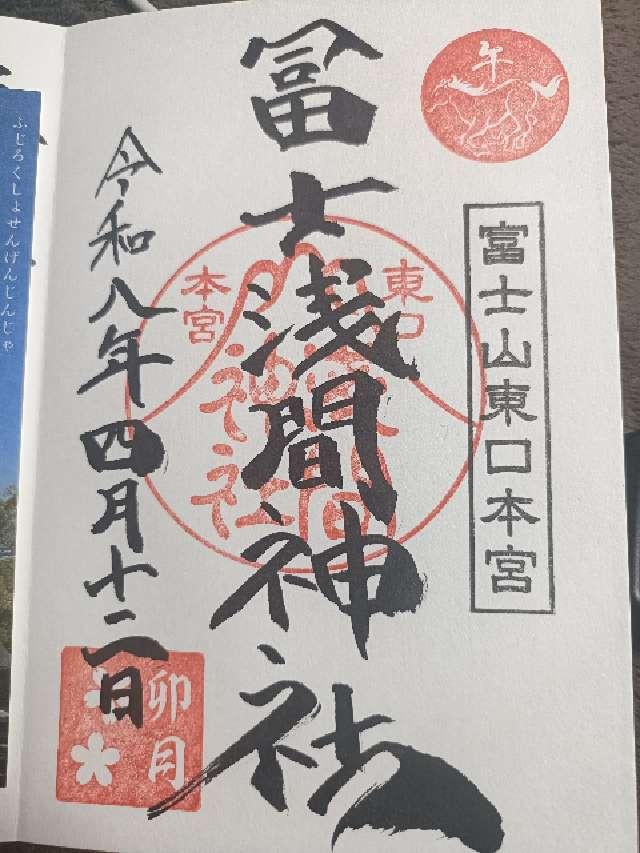 午
富士山東口本宮
冨士浅間神社
東口
本宮
浅間
神社
令和八年四月十二日
卯月
ふじろくしょせんげんじんじゃ